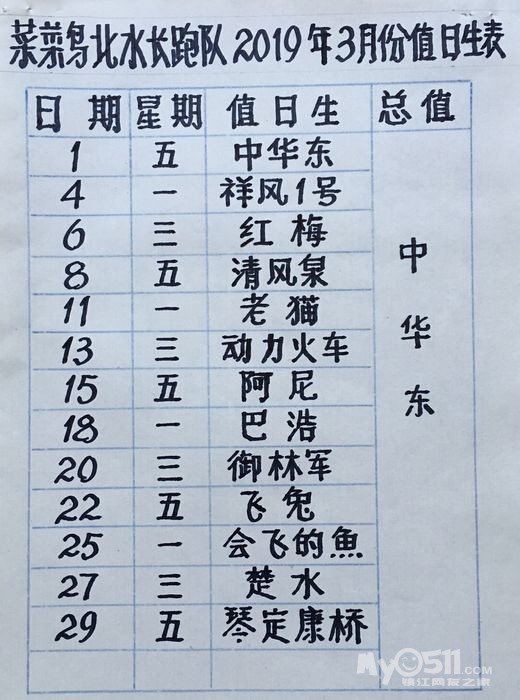 菜菜鸟北水长跑队2019年3月份值日生表
日期 星期 值日生 总值
1 五 中华东
4 一 祥风1号
6 三 红梅
8 五 清风泉
11 一 老猫
13 三 动力火车
15 五 阿尼
18 一 巴浩
20 三 御林军
22 五 飞兔
25 一 会飞的魚
27 三 楚水
29 五 琴定康桥
中华东
My0511.com
镇江网友之家